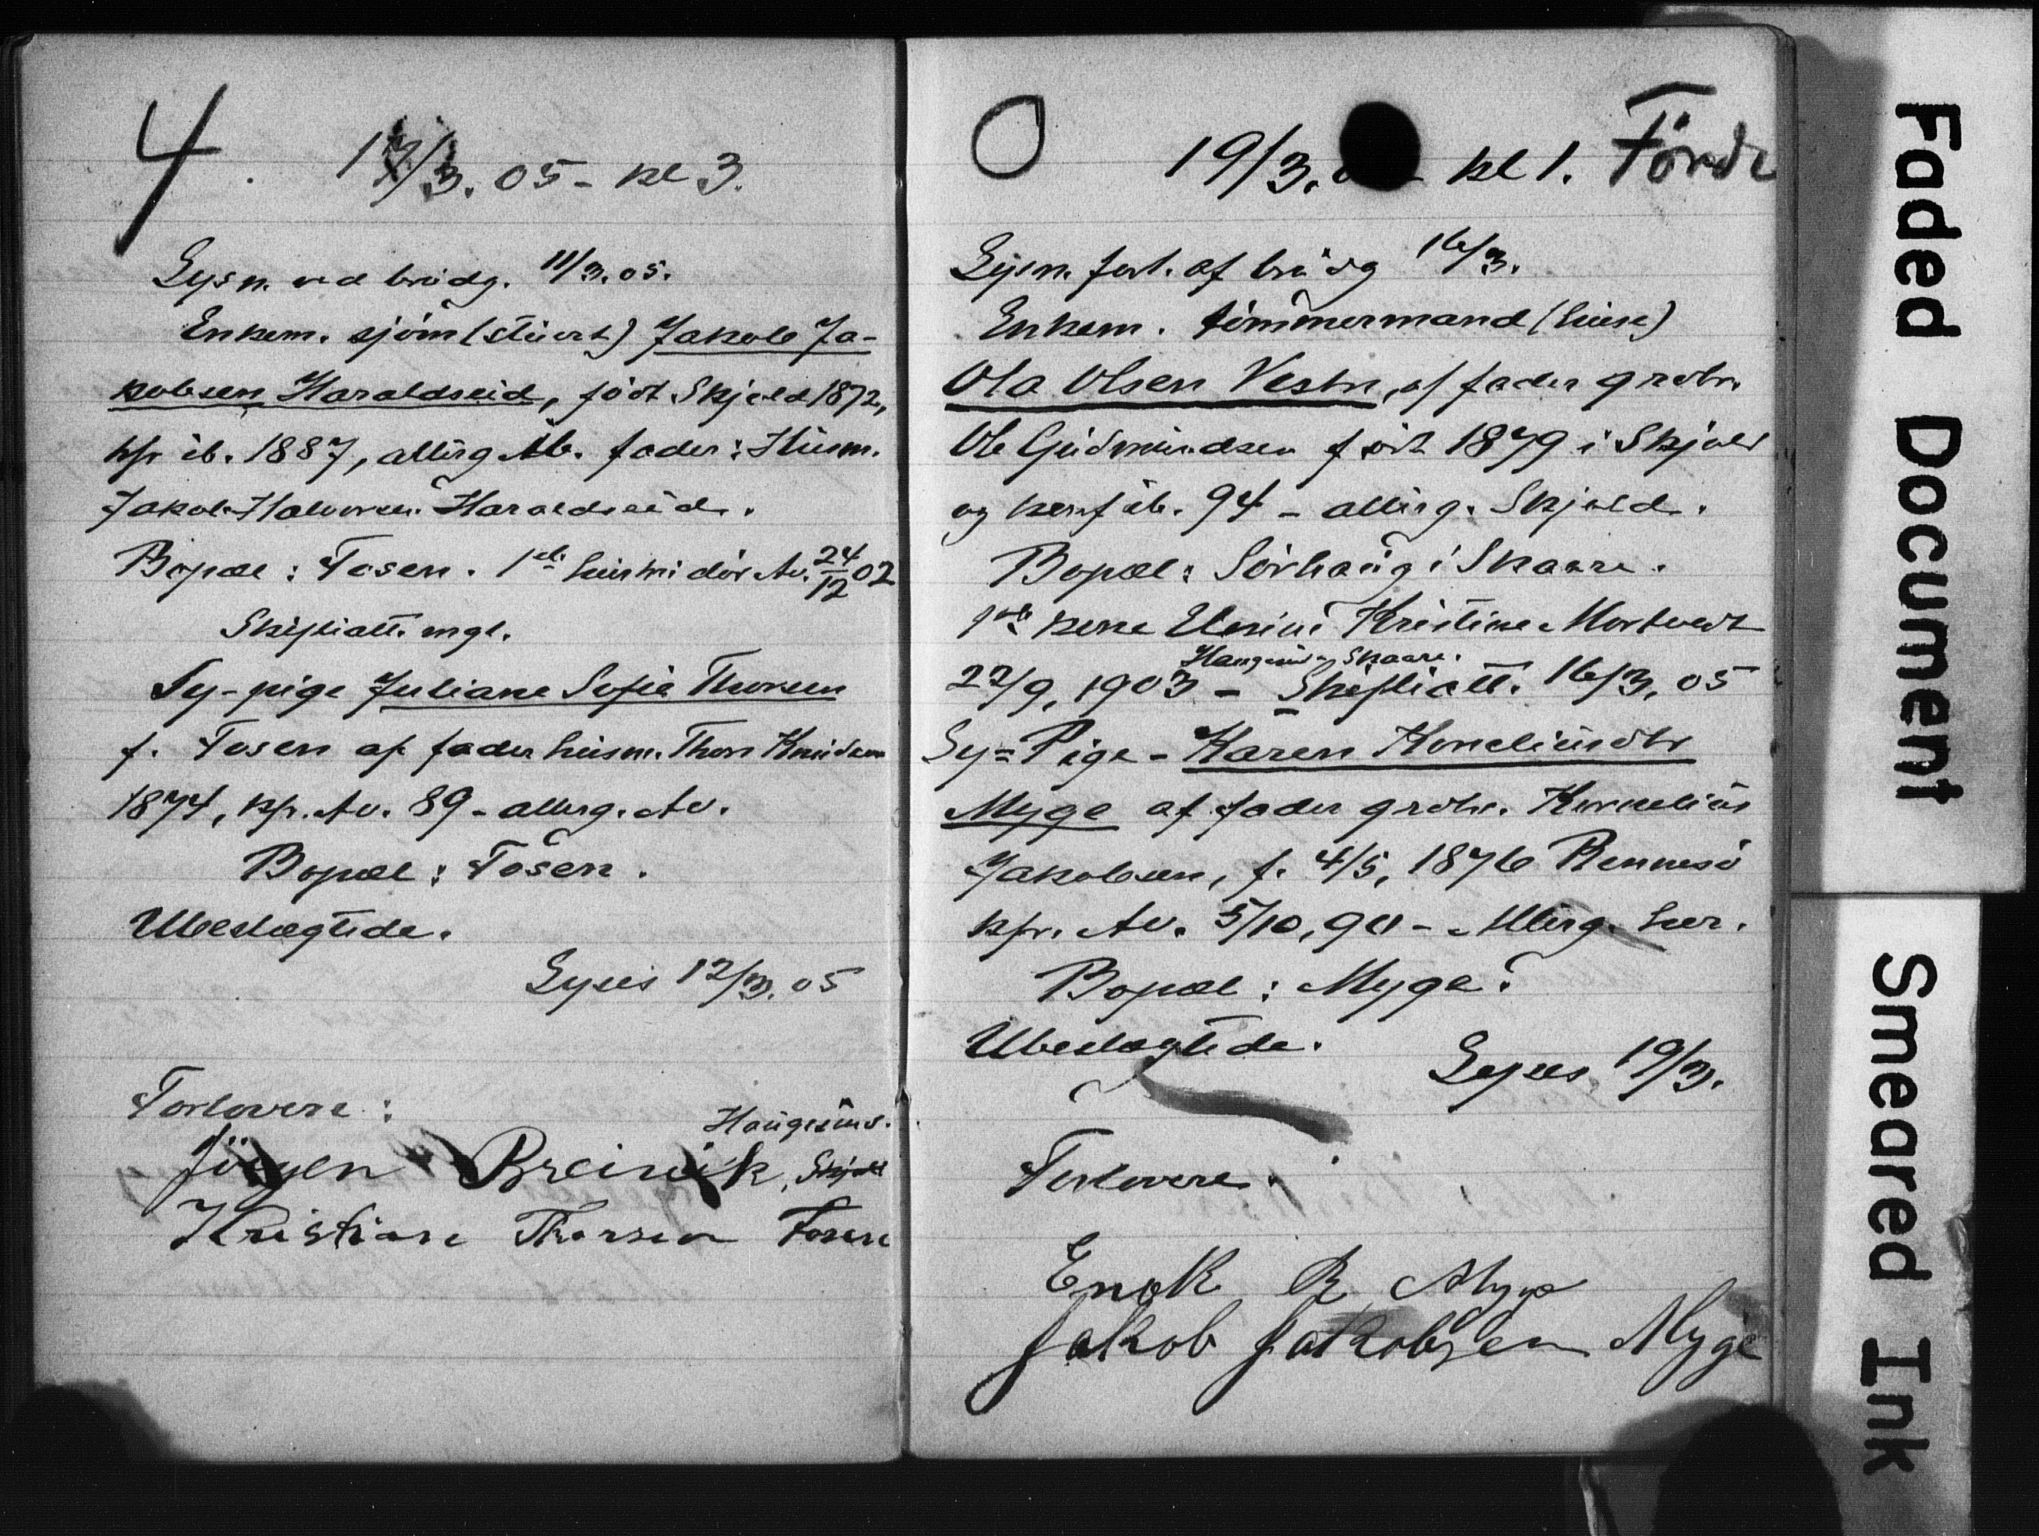 4. 17/3. 05 - kl 3.
Lysn. ved brudg. 11/3. 05.
Enkem. sjöm (stuert) Jakob Ja-
kobsen Haraldseid, födt Skjold 1872,
kfr ib. 1887, allerg ib. fader: Husm.
Jakob Halvorsen Haraldseid.
Bopæl: Fosen. 1ste hustru dör Av. 24/12 02
Skifteatt. mgl.
Sy-pige Juliane Sofie Thorsen
f. Fosen af fader husm. Thore Knudsen
1874, kfr. Av. 89 - allerg. Av.
Bopæl: Fosen.
Ubeslægtede.
Lyses 12/3. 05
Forlovere:
Haugesund.
Jörgen Breivik, Skjold
Kristian Thorsen Fosen
O 19/3. kl 1. Förde
Lysn. forl. af brudg 16/3.
Enkem. tömmermand (huse)
Ola Olsen Vestre, af fader grdbr.
Ole Gudmundsen födt 1879 i Skjold
og konf ib. 94 - allerg. Skjold.
Bopæl: Sörhaug i Skaare.
1ste kone Kristine Mortvedt
Haugesund Skaare.
22/9, 1903 - Skifteatt. 16/3, 05
Sy-Pige - Karen Korneliusdtr
Myge af fader grdbr. Kornelius
Jakobsen, f. 4/5, 1876 Rennesö
kfr. Av. 5/10, 90 - Allerg. her.
Bopæl: Myge.
Ubeslægtede.
Lyses 19/3.
Forlovere.
Enok R Myge
Jakob Jakobsen Myge
Faded Document
Smeared Ink